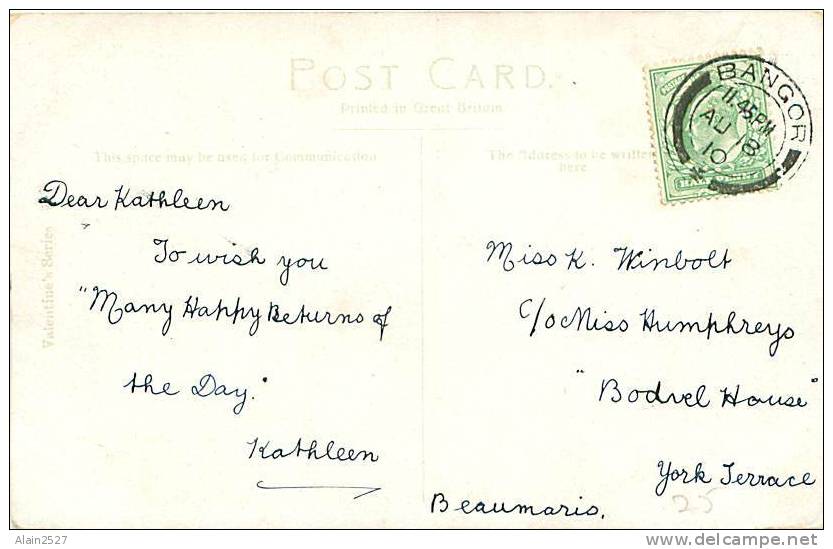 POST CARD.
Printed in Great Britain
This space may be used for Communication
The Address to be written
here
Valentine's Series
BANGOR
11.45PM
AU 18
10
HALFPENNY
Dear Kathleen
To wish you
"Many Happy Returns of
the Day."
Kathleen
Miss K. Winbolt
c/o Miss Humphreys
"Bodvel House"
York Terrace
Beaumaris.
25
Alain2527
www.delcampe.net